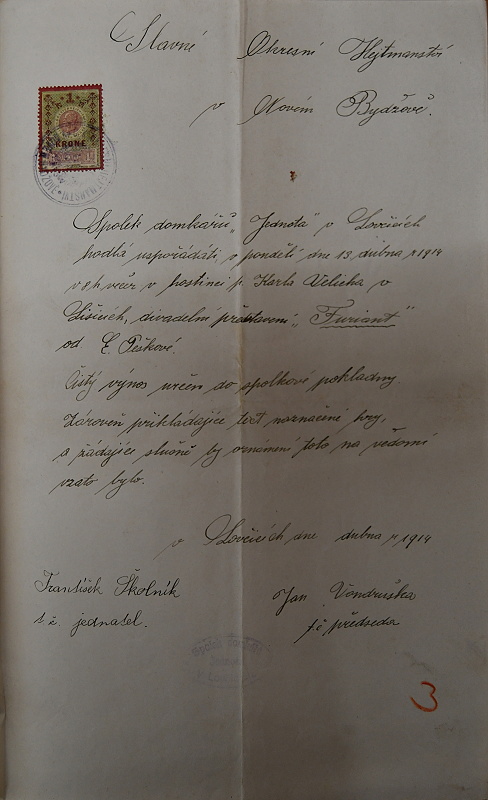 Slavné Okresní Hejtmanství
v Novém Bydžově.
1
KRONE
Spolek domkářů „Jednota" v Lovčicích
hodlá uspořádati v pondělí dne 13. dubna r 1914
v 8 h večer v hostinci p. Karla Velicha v
Lišicích, divadelní představení „Furiant"
od E. Peškové.
Čistý výnos určen do spolkové pokladny.
Zároveň přikládajíce text naznačené hry,
a žádajíce slušně by oznámení toto na vědomí
vzato bylo.
v Lovčicích dne dubna r 1914
František Školník
t. č. jednatel.
Jan Vondruška
t č předseda
3